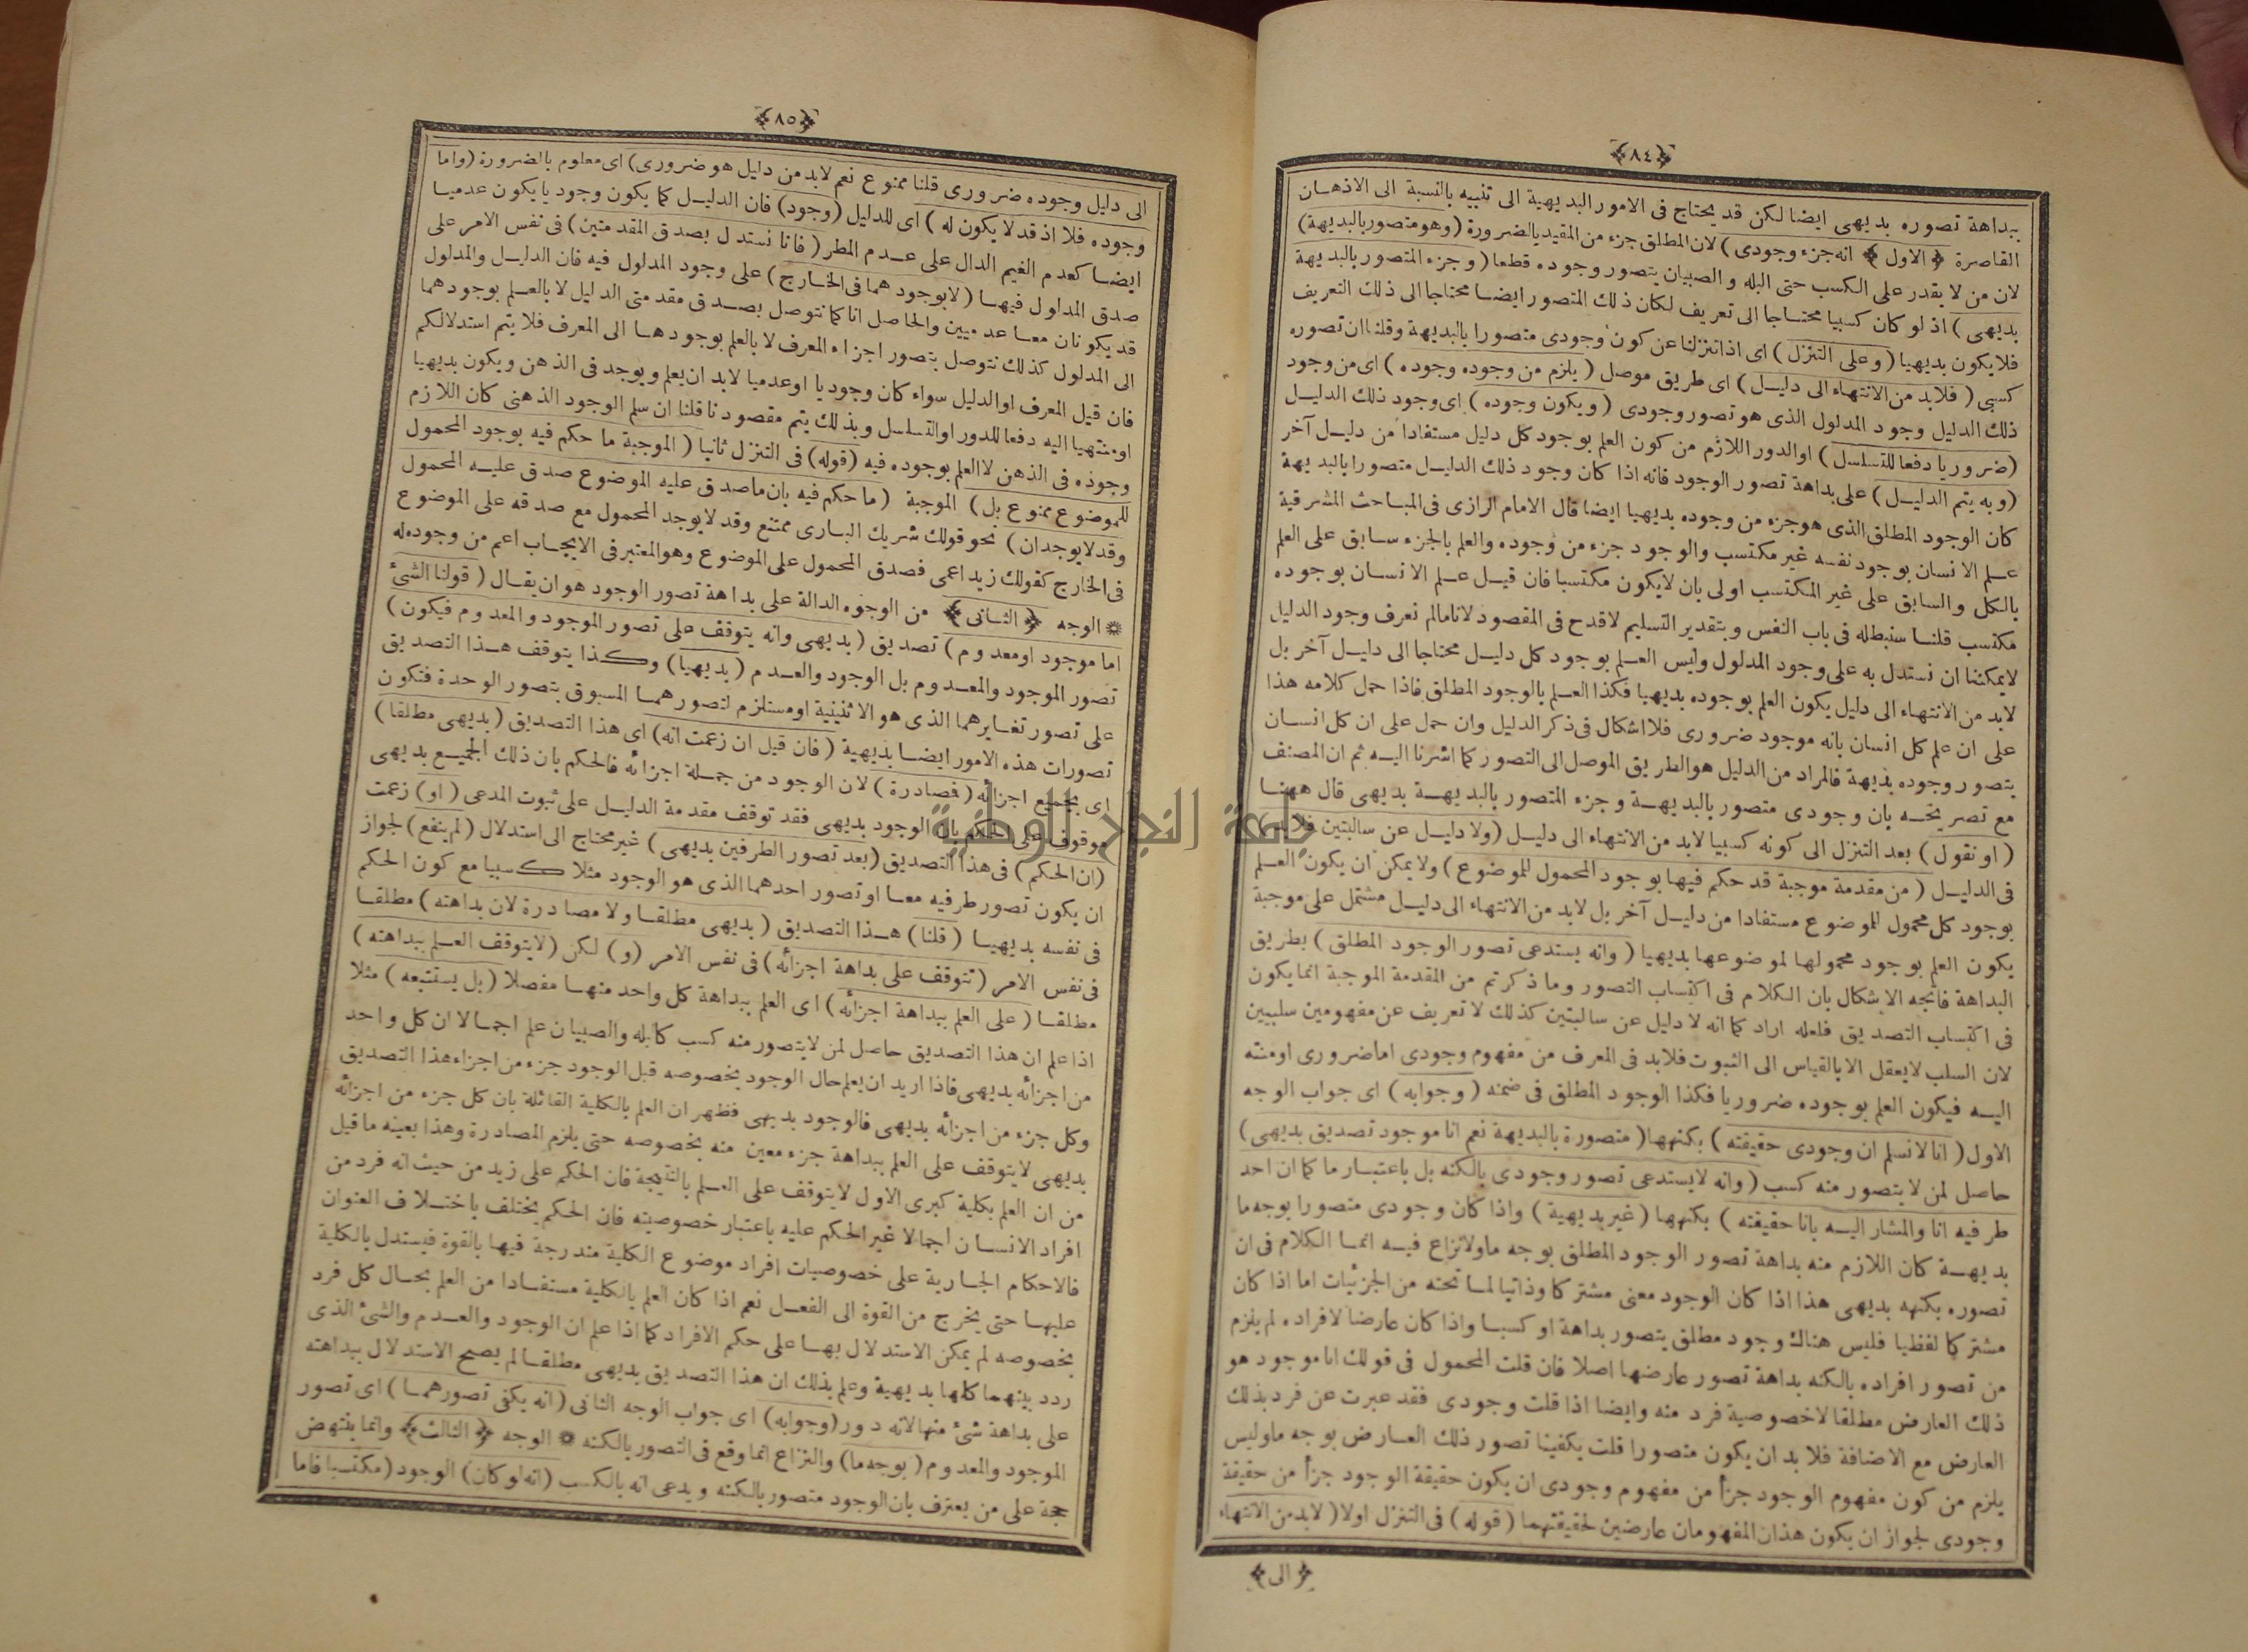 ﴿٨٤﴾
ببداهة تصوره بديهى ايضا لكن قد يحتاج فى الامور البديهية الى تنبيه بالنسبة الى الاذهان
القاصرة ﴿ الاول ﴾ انه جزء وجودى ) لان المطلق جزء من المقيد بالضرورة ( وهو متصور بالبديهة )
لان من لا يقدر على الكسب حتى البله والصبيان يتصور وجوده قطعا ( وجزء المتصور بالبديهة
بديهى ) اذ لو كان كسبيا محتاجا الى تعريف لكان ذلك المتصور ايضا محتاجا الى ذلك التعريف
فلا يكون بديهيا ( وعلى التنزل ) اى اذا تنزلنا عن كون وجودى متصورا بالبديهة وقلنا ان تصوره
كسبى ( فلا بد من الانتهاء الى دليل ) اى طريق موصل ( يلزم من وجوده وجوده ) اى من وجود
ذلك الدليل وجود المدلول الذى هو تصور وجودى ( ويكون وجوده ) اى وجود ذلك الدليل
( ضروريا دفعا للتسلسل ) او الدور اللازم من كون العلم بوجود كل دليل مستفادا من دليل آخر
( وبه يتم الدليل ) على بداهة تصور الوجود فانه اذا كان وجود ذلك الدليل متصورا بالبديهة
كان الوجود المطلق الذى هو جزء من وجوده بديهيا ايضا قال الامام الرازى فى المباحث المشرقية
علم الانسان بوجود نفسه غير مكتسب والوجود جزء من وجوده والعلم بالجزء سابق على العلم
بالكل والسابق على غير المكتسب اولى بان لا يكون مكتسبا فان قيل علم الانسان بوجوده
مكتسب قلنا سنبطله فى باب النفس وبتقدير التسليم لا قدح فى المقصود لانا مالم نعرف وجود الدليل
لا يمكننا ان نستدل به على وجود المدلول وليس العلم بوجود كل دليل محتاجا الى دليل آخر بل
لابد من الانتهاء الى دليل يكون العلم بوجوده بديهيا فكذا العلم بالوجود المطلق فاذا حمل كلامه هذا
على ان علم كل انسان بانه موجود ضرورى فلا اشكال فى ذكر الدليل وان حمل على ان كل انسان
يتصور وجوده بديهة فالمراد من الدليل هو الطريق الموصل الى التصور كما اشرنا اليه ثم ان المصنف
مع تصريحه بان وجودى متصور بالبديهة وجزء المتصور بالبديهة بديهى قال ههنا
( او نقول ) بعد التنزل الى كونه كسبيا لابد من الانتهاء الى دليل ( ولا دليل عن سالبتين فلابد
فى الدليل ( من مقدمة موجبة قد حكم فيها بوجود المحمول للموضوع ) ولا يمكن ان يكون العلم
بوجود كل محمول للموضوع مستفادا من دليل آخر بل لابد من الانتهاء الى دليل مشتمل على موجبة
يكون العلم بوجود محمولها لموضوعها بديهيا ( وانه يستدعى تصور الوجود المطلق ) بطريق
البداهة فاتجه الاشكال بان الكلام فى اكتساب التصور وما ذكرتم من المقدمة الموجبة انما يكون
فى اكتساب التصديق فلعله اراد كما انه لا دليل عن سالبتين كذلك لا تعريف عن مفهومين سلبيين
لان السلب لا يعقل الا بالقياس الى الثبوت فلابد فى المعرف من مفهوم وجودى اما ضرورى او منته
اليه فيكون العلم بوجوده ضروريا فكذا الوجود المطلق فى ضمنه ( وجوابه ) اى جواب الوجه
الاول ( انا لا نسلم ان وجودى حقيقته ) بكنهها ( متصورة بالبديهة نعم انا موجود تصديق بديهى )
حاصل لمن لا يتصور منه كسب ( وانه لا يستدعى تصور وجودى بالكنه بل باعتبار ما كما ان احد
طرفيه انا والمشار اليه بانا حقيقته ) بكنهها ( غير بديهية ) واذا كان وجودى متصورا بوجه ما
بديهة كان اللازم منه بداهة تصور الوجود المطلق بوجه ما ولا نزاع فيه انما الكلام فى ان
تصوره بكنهه بديهى هذا اذا كان الوجود معنى مشتركا وذاتيا لما تحته من الجزئيات اما اذا كان
مشتركا لفظيا فليس هناك وجود مطلق يتصور بداهة او كسبا واذا كان عارضا لافراده لم يلزم
من تصور افراده بالكنه بداهة تصور عارضها اصلا فان قلت المحمول فى قولك انا موجود هو
ذلك العارض مطلقا لا خصوصية فرد منه وايضا اذا قلت وجودى فقد عبرت عن فرد بذلك
العارض مع الاضافة فلا بد ان يكون متصورا قلت يكفينا تصور ذلك العارض بوجه ما وليس
يلزم من كون مفهوم الوجود جزأ من مفهوم وجودى ان يكون حقيقة الوجود جزأ من حقيقة
وجودى لجواز ان يكون هذان المفهومان عارضين لحقيقتهما ( قوله ) فى التنزل اولا ( لابد من الانتهاء
﴿ الى ﴾
﴿٨٥﴾
الى دليل وجوده ضرورى قلنا ممنوع نعم لابد من دليل هو ضرورى ) اى معلوم بالضرورة ( واما
وجوده فلا اذ قد لا يكون له ) اى للدليل ( وجود ) فان الدليل كما يكون وجوديا يكون عدميا
ايضا كعدم الغيم الدال على عدم المطر ( فانا نستدل بصدق المقدمتين ) فى نفس الامر على
صدق المداول فيها ( لا بوجودهما فى الخارج ) على وجود المدلول فيه فان الدليل والمدلول
قد يكونان معا عدميين والحاصل انا كما نتوصل بصدق مقدمتى الدليل لا بالعلم بوجودهما
الى المدلول كذلك نتوصل بتصور اجزاء المعرف لا بالعلم بوجودها الى المعرف فلا يتم استدلالكم
فان قيل المعرف او الدليل سواء كان وجوديا او عدميا لابد ان يعلم ويوجد فى الذهن ويكون بديهيا
او منتهيا اليه دفعا للدور او التسلسل وبذلك يتم مقصودنا قلنا ان سلم الوجود الذهنى كان اللازم
وجوده فى الذهن لا العلم بوجوده فيه ( قوله ) فى التنزل ثانيا ( الموجبة ما حكم فيه بوجود المحمول
للموضوع ممنوع بل ) الموجبة ( ما حكم فيه بان ما صدق عليه الموضوع صدق عليه المحمول
وقد لا يوجدان ) نحو قولك شريك البارى ممتنع وقد لا يوجد المحمول مع صدقه على الموضوع
فى الخارج كقولك زيد اعمى فصدق المحمول على الموضوع وهو المعتبر فى الايجاب اعم من وجوده له
۞ الوجه ﴿ الثانى ﴾ من الوجوه الدالة على بداهة تصور الوجود هو ان يقال ( قولنا الشئ
اما موجود او معدوم ) تصديق ( بديهى وانه يتوقف على تصور الموجود والمعدوم فيكون )
تصور الموجود والمعدوم بل الوجود والعدم ( بديهيا ) وكذا يتوقف هذا التصديق
على تصور تغايرهما الذى هو الاثنينية او مستلزم لتصورهما المسبوق بتصور الوحدة فتكون
تصورات هذه الامور ايضا بديهية ( فان قيل ان زعمت انه ) اى هذا التصديق ( بديهى مطلقا )
اى بجميع اجزائه ( فصادرة ) لان الوجود من جملة اجزائه فالحكم بان ذلك الجميع بديهى
موقوف على الحكم بان الوجود بديهى فقد توقف مقدمة الدليل على ثبوت المدعى ( او ) زعمت
( ان الحكم ) فى هذا التصديق ( بعد تصور الطرفين بديهى ) غير محتاج الى استدلال ( لم ينفع ) لجواز
ان يكون تصور طرفيه معا او تصور احدهما الذى هو الوجود مثلا كسبيا مع كون الحكم
فى نفسه بديهيا ( قلنا ) هذا التصديق ( بديهى مطلقا ولا مصادرة لان بداهته ) مطلقا
فى نفس الامر ( تتوقف على بداهة اجزائه ) فى نفس الامر ( و ) لكن ( لا يتوقف العلم ببداهته )
مطلقا ( على العلم ببداهة اجزائه ) اى العلم ببداهة كل واحد منها مفصلا ( بل يستتبعه ) مثلا
اذا علم ان هذا التصديق حاصل لمن لا يتصور منه كسب كالبله والصبيان علم اجمالا ان كل واحد
من اجزائه بديهى فاذا اريد ان يعلم حال الوجود بخصوصه قيل الوجود جزء من اجزاء هذا التصديق
وكل جزء من اجزائه بديهى فالوجود بديهى فظهر ان العلم بالكلية القائلة بان كل جزء من اجزائه
بديهى لا يتوقف على العلم ببداهة جزء معين منه بخصوصه حتى يلزم المصادرة وهذا بعينه ما قيل
من ان العلم بكلية كبرى الاول لا يتوقف على العلم بالنتيجة فان الحكم على زيد من حيث انه فرد من
افراد الانسان اجمالا غير الحكم عليه باعتبار خصوصيته فان الحكم يختلف باختلاف العنوان
فالاحكام الجارية على خصوصيات افراد موضوع الكلية مندرجة فيها بالقوة فيستدل بالكلية
عليها حتى يخرج من القوة الى الفعل نعم اذا كان العلم بالكلية مستفادا من العلم بحال كل فرد
بخصوصه لم يمكن الاستدلال بها على حكم الافراد كما اذا علم ان الوجود والعدم والشئ الذى
ردد بينهما كلها بديهية وعلم بذلك ان هذا التصديق بديهى مطلقا لم يصح الاستدلال ببداهته
على بداهة شئ منها لانه دور ( وجوابه ) اى جواب الوجه الثانى ( انه يكفى تصورهما ) اى تصور
الموجود والمعدوم ( بوجه ما ) والنزاع انما وقع فى التصور بالكنه ۞ الوجه ﴿ الثالث ﴾ وانما ينتهض
حجة على من يعترف بان الوجود متصور بالكنه ويدعى انه بالكسب ( انه لو كان ) الوجود ( مكتسبا فاما
جامعة النجاح الوطنية